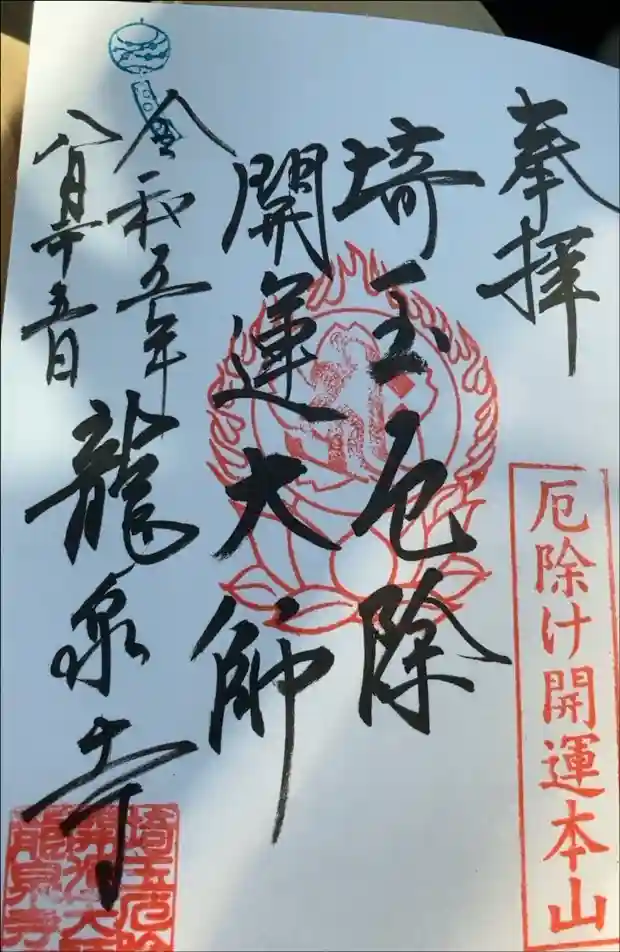 奉拝
厄除け開運本山
埼玉厄除
開運大師
令和五年
八月十五日
龍泉寺
埼玉厄除
開運大師
龍泉寺